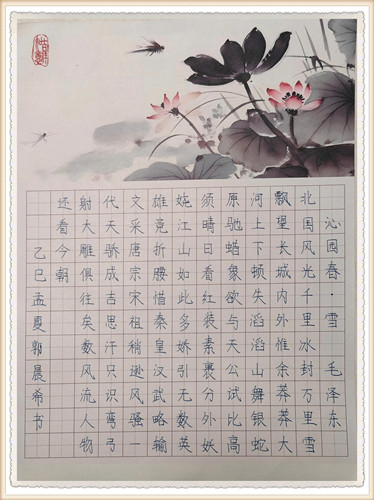 沁园春·雪 毛泽东
北国风光千里冰封万里雪
飘望长城内外惟余莽莽大
河上下顿失滔滔山舞银蛇
原驰蜡象欲与天公试比高
须晴日看红装素裹分外妖
娆江山如此多娇引无数英
雄竞折腰惜秦皇汉武略输
文采唐宗宋祖稍逊风骚一
代天骄成吉思汗只识弯弓
射大雕俱往矣数风流人物
还看今朝
乙巳孟夏郭晨希书